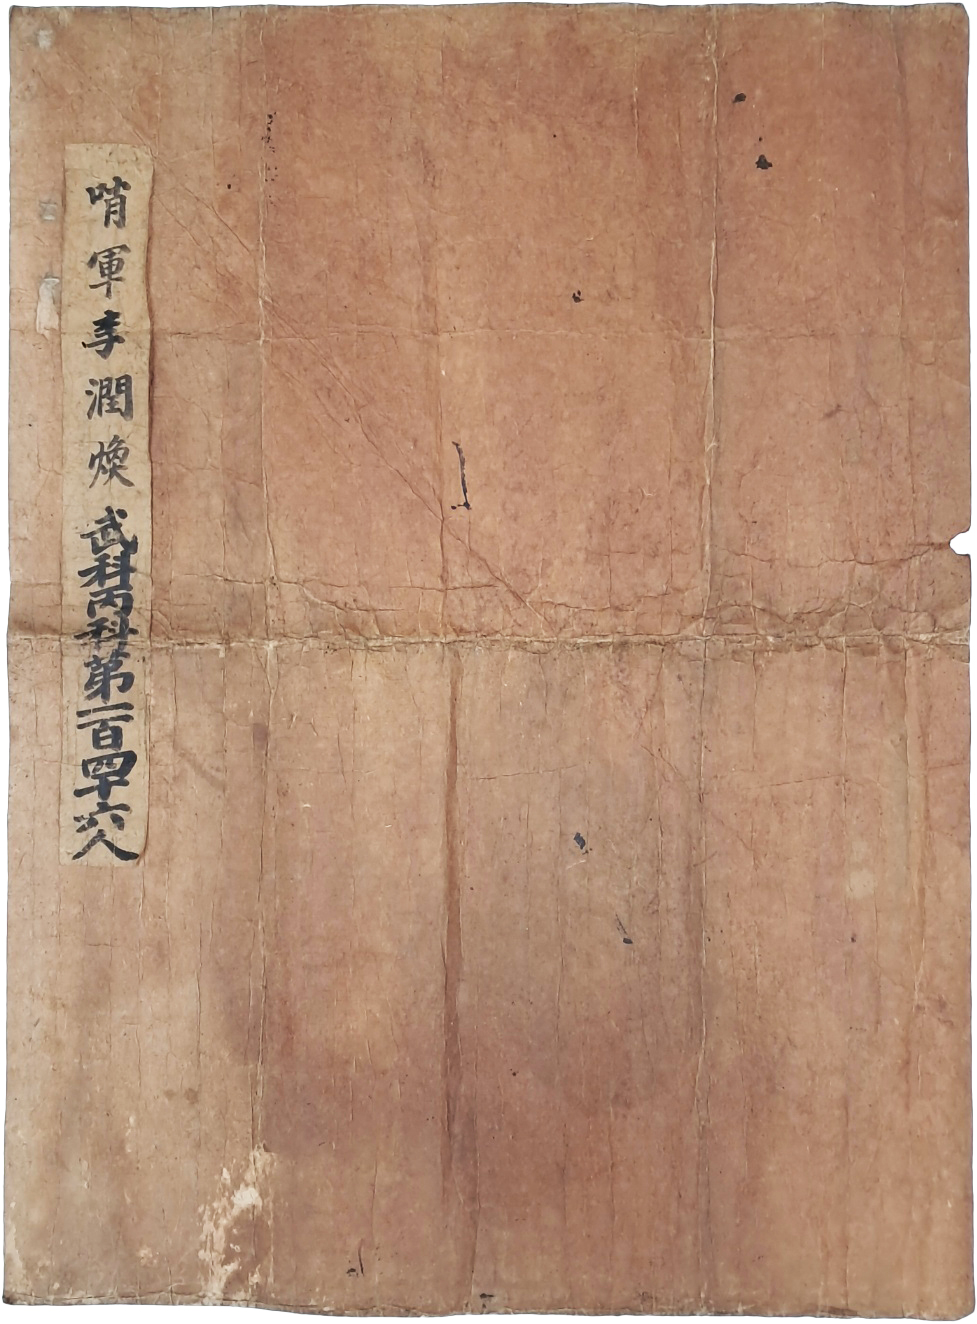 哨軍李潤煥武科丙科第一百四十六人